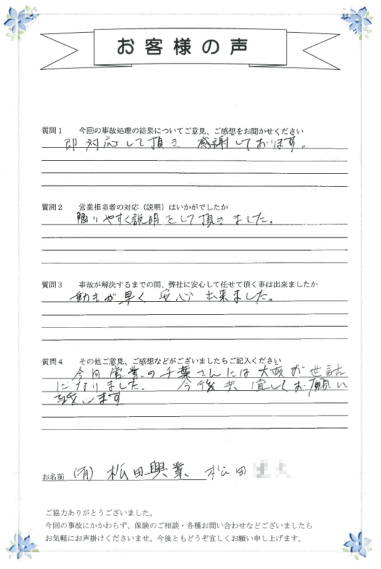 お客様の声
質問1 今回の事故処理の結果についてご意見、ご感想をお聞かせください
即対応して頂き 感謝しております。
質問2 営業担当者の対応(説明)はいかがでしたか
解りやすく説明をして頂きました。
質問3 事故が解決するまでの間、弊社に安心して任せて頂く事は出来ましたか
動きが早く 安心出来ました。
質問4 その他ご意見、ご感想などがございましたらご記入ください
今回営業の千葉さんには大変お世話
になりました。 今後共 宜しくお願い
致します
お名前 (有) 松田興業 松田
ご協力ありがとうございました。
今回の事故にかかわらず、保険のご相談・各種お問い合わせなどございましたら
お気軽にお声掛けくださいませ。今後ともどうぞ宜しくお願い申し上げます。